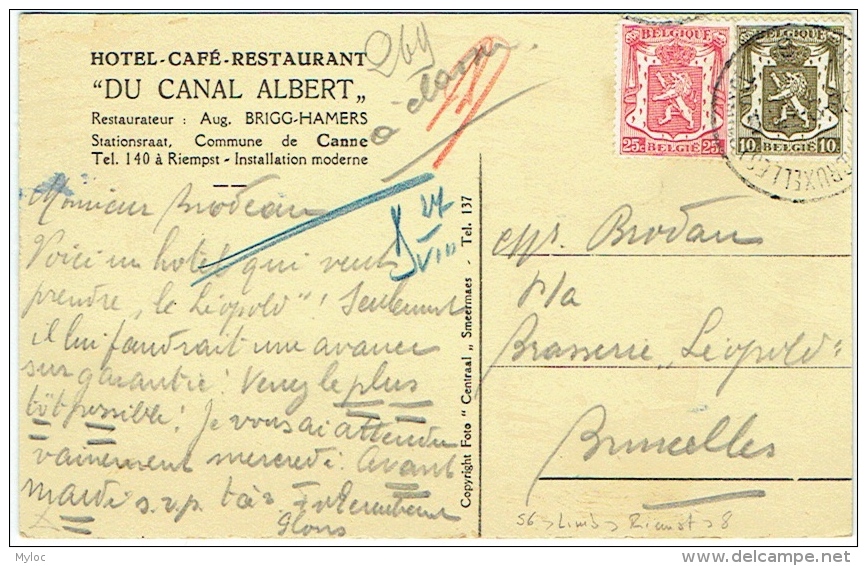 HOTEL-CAFÉ-RESTAURANT
"DU CANAL ALBERT„
Restaurateur : Aug. BRIGG-HAMERS
Stationsraat, Commune de Canne
Tel. 140 à Riempst - Installation moderne
269
à classer
Monsieur Brodeau
Voici un hotel qui veut
prendre „le Léopold"! Seulement
il lui faudrait une avance
sur garantie! Venez le plus
tôt possible! Je vous ai attendu
vainement mercredi. Avant
mardi s.v.p.
Glons
27
VIII
Copyright Foto "Centraal„ Smeermaes - Tel. 137
BELGIQUE
25c BELGIË 25c
BELGIQUE
10c BELGIË 10c
BRUXELLES
Mr. Brodau
p/a
Brasserie „Léopold"
Bruxelles
S6 > Limb > Riemst > 8
Myloc
delcampe.net